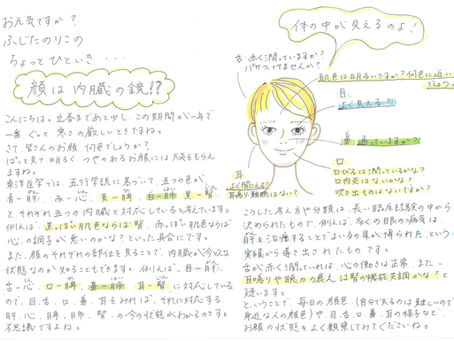 お元気ですか?
ふじたのりこの
ちょっとひといき・・・
顔は内臓の鏡!?
こんにちは。立春まであと少し。この期間が一年で
一番ぐっと寒さの厳しいときですね。
さて、皆さんのお顔、何色でしょうか?
ぱっと見て明るく、つやのあるお顔には元気をもらえ
ますね。
東洋医学では、五行学説に基づいて、五つの色が
青-肝、赤-心、黄-脾、白-肺、黒-腎
と、それぞれ五つの内臓と対応していると考えています。
例えば、黒っぽい肌色ならば腎、赤っぽい肌色ならば
心の調子が悪いのかな?といった具合にです。
また、顔のそれぞれの部位を見ることで、内臓が今どんな
状態なのか知ることもできます。例えば、目-肝、
舌-心、口-脾、鼻-肺、耳-腎に対応している
ので、目、舌、口、鼻、耳をみれば、それに対応する
肝、心、脾、肺、腎の今の状態がわかるのです。
不思議ですよね。
体の中が見えるのよ!
舌 赤く潤っていますか?
パサついてませんか?
肌色は明るいですか?何色に近い
でしょう?
目
よく見える?
鼻 通っていますか?
口
口びるは潤っているかな?
口内炎はないかな?
吹き出ものはないですか?
耳
よく聞こえる?
耳鳴り、難聴はない?
こうした考え方や分類は、長い臨床経験の中から
決められたもので、例えば、多くの眼の病気は、
肝を治療することでよい効果が得られた、という
実績から導き出されたものです。
舌が赤く潤っていれば、心の働きは正常、また、
耳鳴りや聴力の衰えは腎の機能失調かな?と
疑います。
ということで、毎日の顔色(自分で見るのは難しいので
身近な人の顔色)や、目、舌、口、鼻、耳の様子など、
お顔の状態をよく観察してみてくださいね。